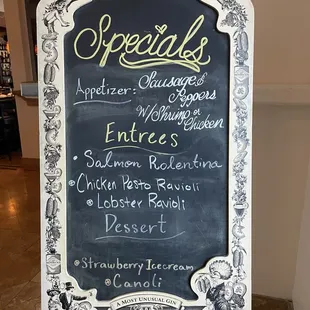 Specials
Appetizer: Sausage &
Peppers
W/ Shrimp or
Chicken
Entrees
• Salmon Rolentina
• Chicken Pesto Ravioli
• Lobster Ravioli
Dessert
• Strawberry Icecream
• Canoli
A MOST UNUSUAL